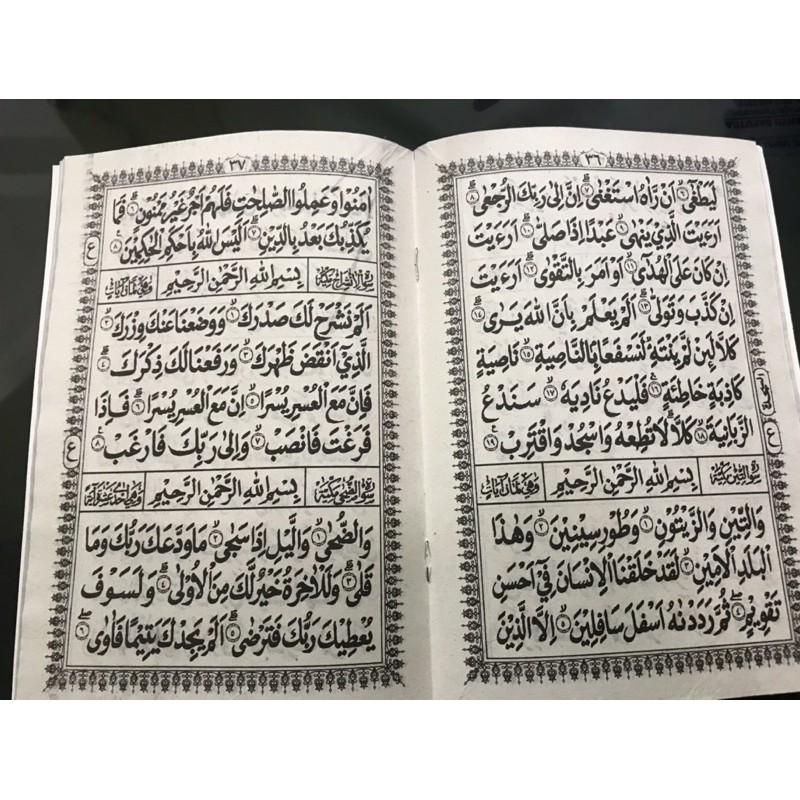 ٣٦
لَيَطْغٰٓى ۙ‏﴿٦﴾ اَنْ رَّاٰهُ اسْتَغْنٰى ؕ‏﴿٧﴾ اِنَّ اِلٰى رَبِّكَ الرُّجْعٰى ؕ‏﴿٨﴾
اَرَءَيْتَ الَّذِيْ يَنْهٰى ۙ‏﴿٩﴾ عَبْدًا اِذَا صَلّٰى ؕ‏﴿١٠﴾ اَرَءَيْتَ
اِنْ كَانَ عَلَى الْهُدٰٓى ۙ‏﴿١١﴾ اَوْ اَمَرَ بِالتَّقْوٰى ؕ‏﴿١٢﴾ اَرَءَيْتَ
اِنْ كَذَّبَ وَتَوَلّٰى ؕ‏﴿١٣﴾ اَلَمْ يَعْلَمْ بِاَنَّ اللّٰهَ يَرٰى ؕ‏﴿١٤﴾
كَلَّا لَئِنْ لَّمْ يَنْتَهِ لَنَسْفَعًا بِالنَّاصِيَةِ ۙ‏﴿١٥﴾ نَاصِيَةٍ
كَاذِبَةٍ خَاطِئَةٍ ۚ‏﴿١٦﴾ فَلْيَدْعُ نَادِيَهٗ ۙ‏﴿١٧﴾ سَنَدْعُ
الزَّبَانِيَةَ ۙ‏﴿١٨﴾ كَلَّا ؕ لَا تُطِعْهُ وَاسْجُدْ وَاقْتَرِبْ ۩‏﴿١٩﴾
السجدة
ع
سورة التين مكية
بِسْمِ اللّٰهِ الرَّحْمٰنِ الرَّحِيْمِ
وهي ثمان آيات
وَالتِّيْنِ وَالزَّيْتُوْنِ ۙ‏﴿١﴾ وَطُوْرِ سِيْنِيْنَ ۙ‏﴿٢﴾ وَهٰذَا
الْبَلَدِ الْاَمِيْنِ ۙ‏﴿٣﴾ لَقَدْ خَلَقْنَا الْاِنْسَانَ فِيْٓ اَحْسَنِ
تَقْوِيْمٍ ۖ‏﴿٤﴾ ثُمَّ رَدَدْنٰهُ اَسْفَلَ سَافِلِيْنَ ۙ‏﴿٥﴾ اِلَّا الَّذِيْنَ
٣٧
اٰمَنُوْا وَعَمِلُوا الصّٰلِحٰتِ فَلَهُمْ اَجْرٌ غَيْرُ مَمْنُوْنٍ ؕ‏﴿٦﴾ فَمَا
يُكَذِّبُكَ بَعْدُ بِالدِّيْنِ ؕ‏﴿٧﴾ اَلَيْسَ اللّٰهُ بِاَحْكَمِ الْحٰكِمِيْنَ ࣖ‏﴿٨﴾
ع
سورة الانشراح مكية
بِسْمِ اللّٰهِ الرَّحْمٰنِ الرَّحِيْمِ
وهي ثمان آيات
اَلَمْ نَشْرَحْ لَكَ صَدْرَكَ ۙ‏﴿١﴾ وَوَضَعْنَا عَنْكَ وِزْرَكَ ۙ‏﴿٢﴾
الَّذِيْٓ اَنْقَضَ ظَهْرَكَ ۙ‏﴿٣﴾ وَرَفَعْنَا لَكَ ذِكْرَكَ ؕ‏﴿٤﴾
فَاِنَّ مَعَ الْعُسْرِ يُسْرًا ۙ‏﴿٥﴾ اِنَّ مَعَ الْعُسْرِ يُسْرًا ؕ‏﴿٦﴾ فَاِذَا
فَرَغْتَ فَانْصَبْ ۙ‏﴿٧﴾ وَاِلٰى رَبِّكَ فَارْغَبْ ࣖ‏﴿٨﴾
ع
سورة الضحى مكية
بِسْمِ اللّٰهِ الرَّحْمٰنِ الرَّحِيْمِ
وهي احدى عشرة آية
وَالضُّحٰى ۙ‏﴿١﴾ وَالَّيْلِ اِذَا سَجٰى ۙ‏﴿٢﴾ مَا وَدَّعَكَ رَبُّكَ وَمَا
قَلٰى ؕ‏﴿٣﴾ وَلَلْاٰخِرَةُ خَيْرٌ لَّكَ مِنَ الْاُوْلٰى ؕ‏﴿٤﴾ وَلَسَوْفَ
يُعْطِيْكَ رَبُّكَ فَتَرْضٰى ؕ‏﴿٥﴾ اَلَمْ يَجِدْكَ يَتِيْمًا فَاٰوٰى ۖ‏﴿٦﴾